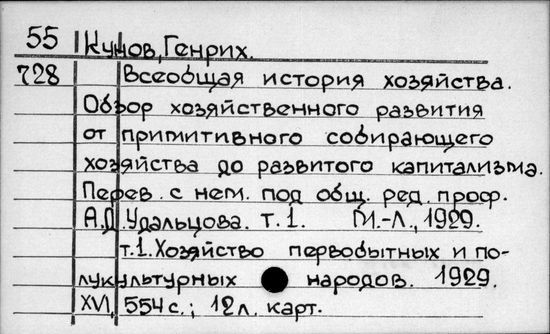 55 Кунов, Генрих.
728 Всеобщая история хозяйства.
Обзор хозяйственного развития
от примитивного собирающего
хозяйства до развитого капитализма.
Перев. с нем. под общ. ред. проф.
А.Д. Удальцова. т.1. М.-Л., 1929.
т.1. Хозяйство первобытных и по-
лукультурных народов. 1929.
XVI, 554 с.; 12 л. карт.